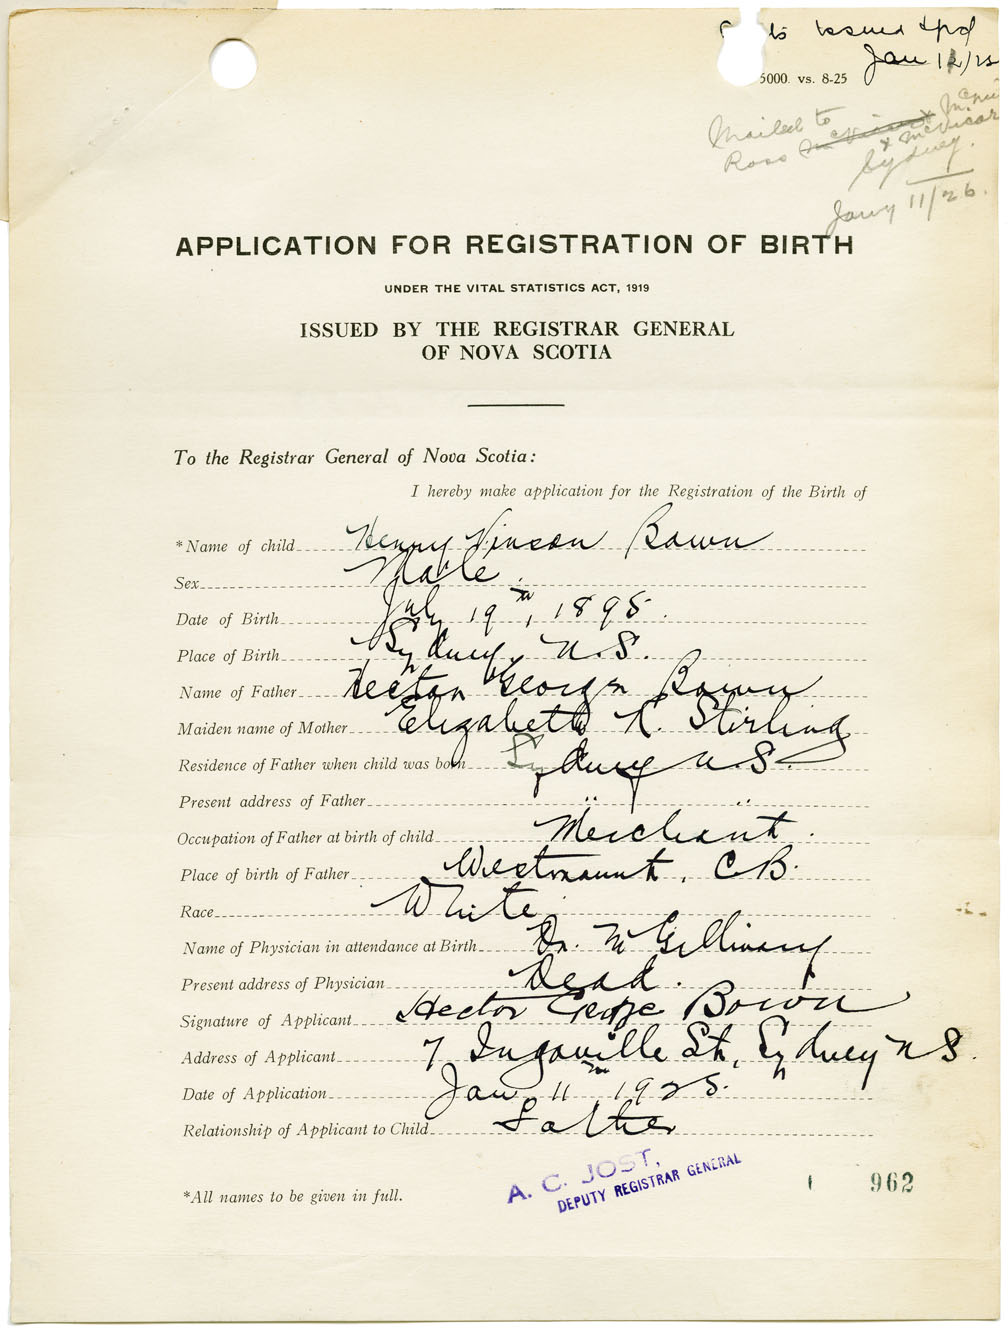 Issued & pd
Jan 12/25
5000. vs. 8-25
Mailed to
Ross McVicar & McNu
& McVicar
Sydney.
Jany 11/26.
APPLICATION FOR REGISTRATION OF BIRTH
UNDER THE VITAL STATISTICS ACT, 1919
ISSUED BY THE REGISTRAR GENERAL
OF NOVA SCOTIA
To the Registrar General of Nova Scotia:
I hereby make application for the Registration of the Birth of
*Name of child Henry Vinson Bown
Sex Male.
Date of Birth July 19th, 1895.
Place of Birth Sydney, N.S.
Name of Father Hector George Bown
Maiden name of Mother Elizabeth K. Stirling
Residence of Father when child was born Sydney N.S.
Present address of Father " "
Occupation of Father at birth of child Merchant.
Place of birth of Father Westmount, C.B.
Race White.
Name of Physician in attendance at Birth Dr. McGillivary
Present address of Physician Dead.
Signature of Applicant Hector George Bown
Address of Applicant 7 Ingaville St, Sydney N S.
Date of Application Jan 11th, 1925.
Relationship of Applicant to Child Father
*All names to be given in full.
A. C. JOST,
DEPUTY REGISTRAR GENERAL
962